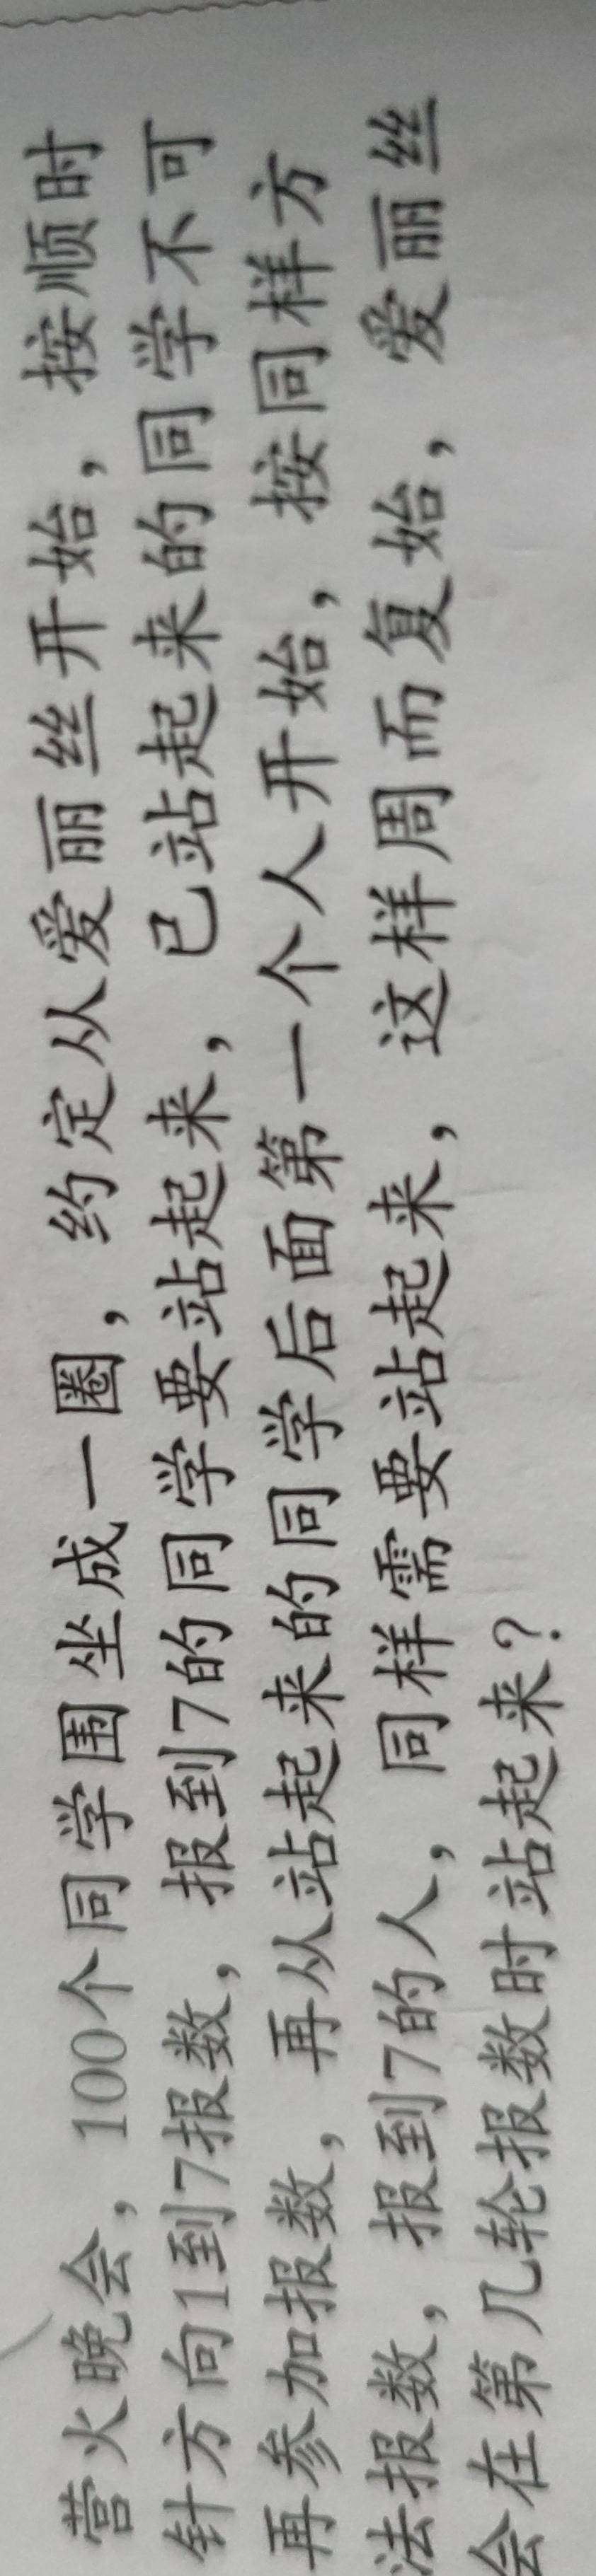 营火晚会，100个同学围坐成一圈，约定从爱丽丝开始，按顺时
针方向1到7报数，报到7的同学要站起来，已站起来的同学不可
再参加报数，再从站起来的同学后面第一个人开始，按同样方
法报数，报到7的人，同样需要站起来，这样周而复始，爱丽丝
会在第几轮报数时站起来？